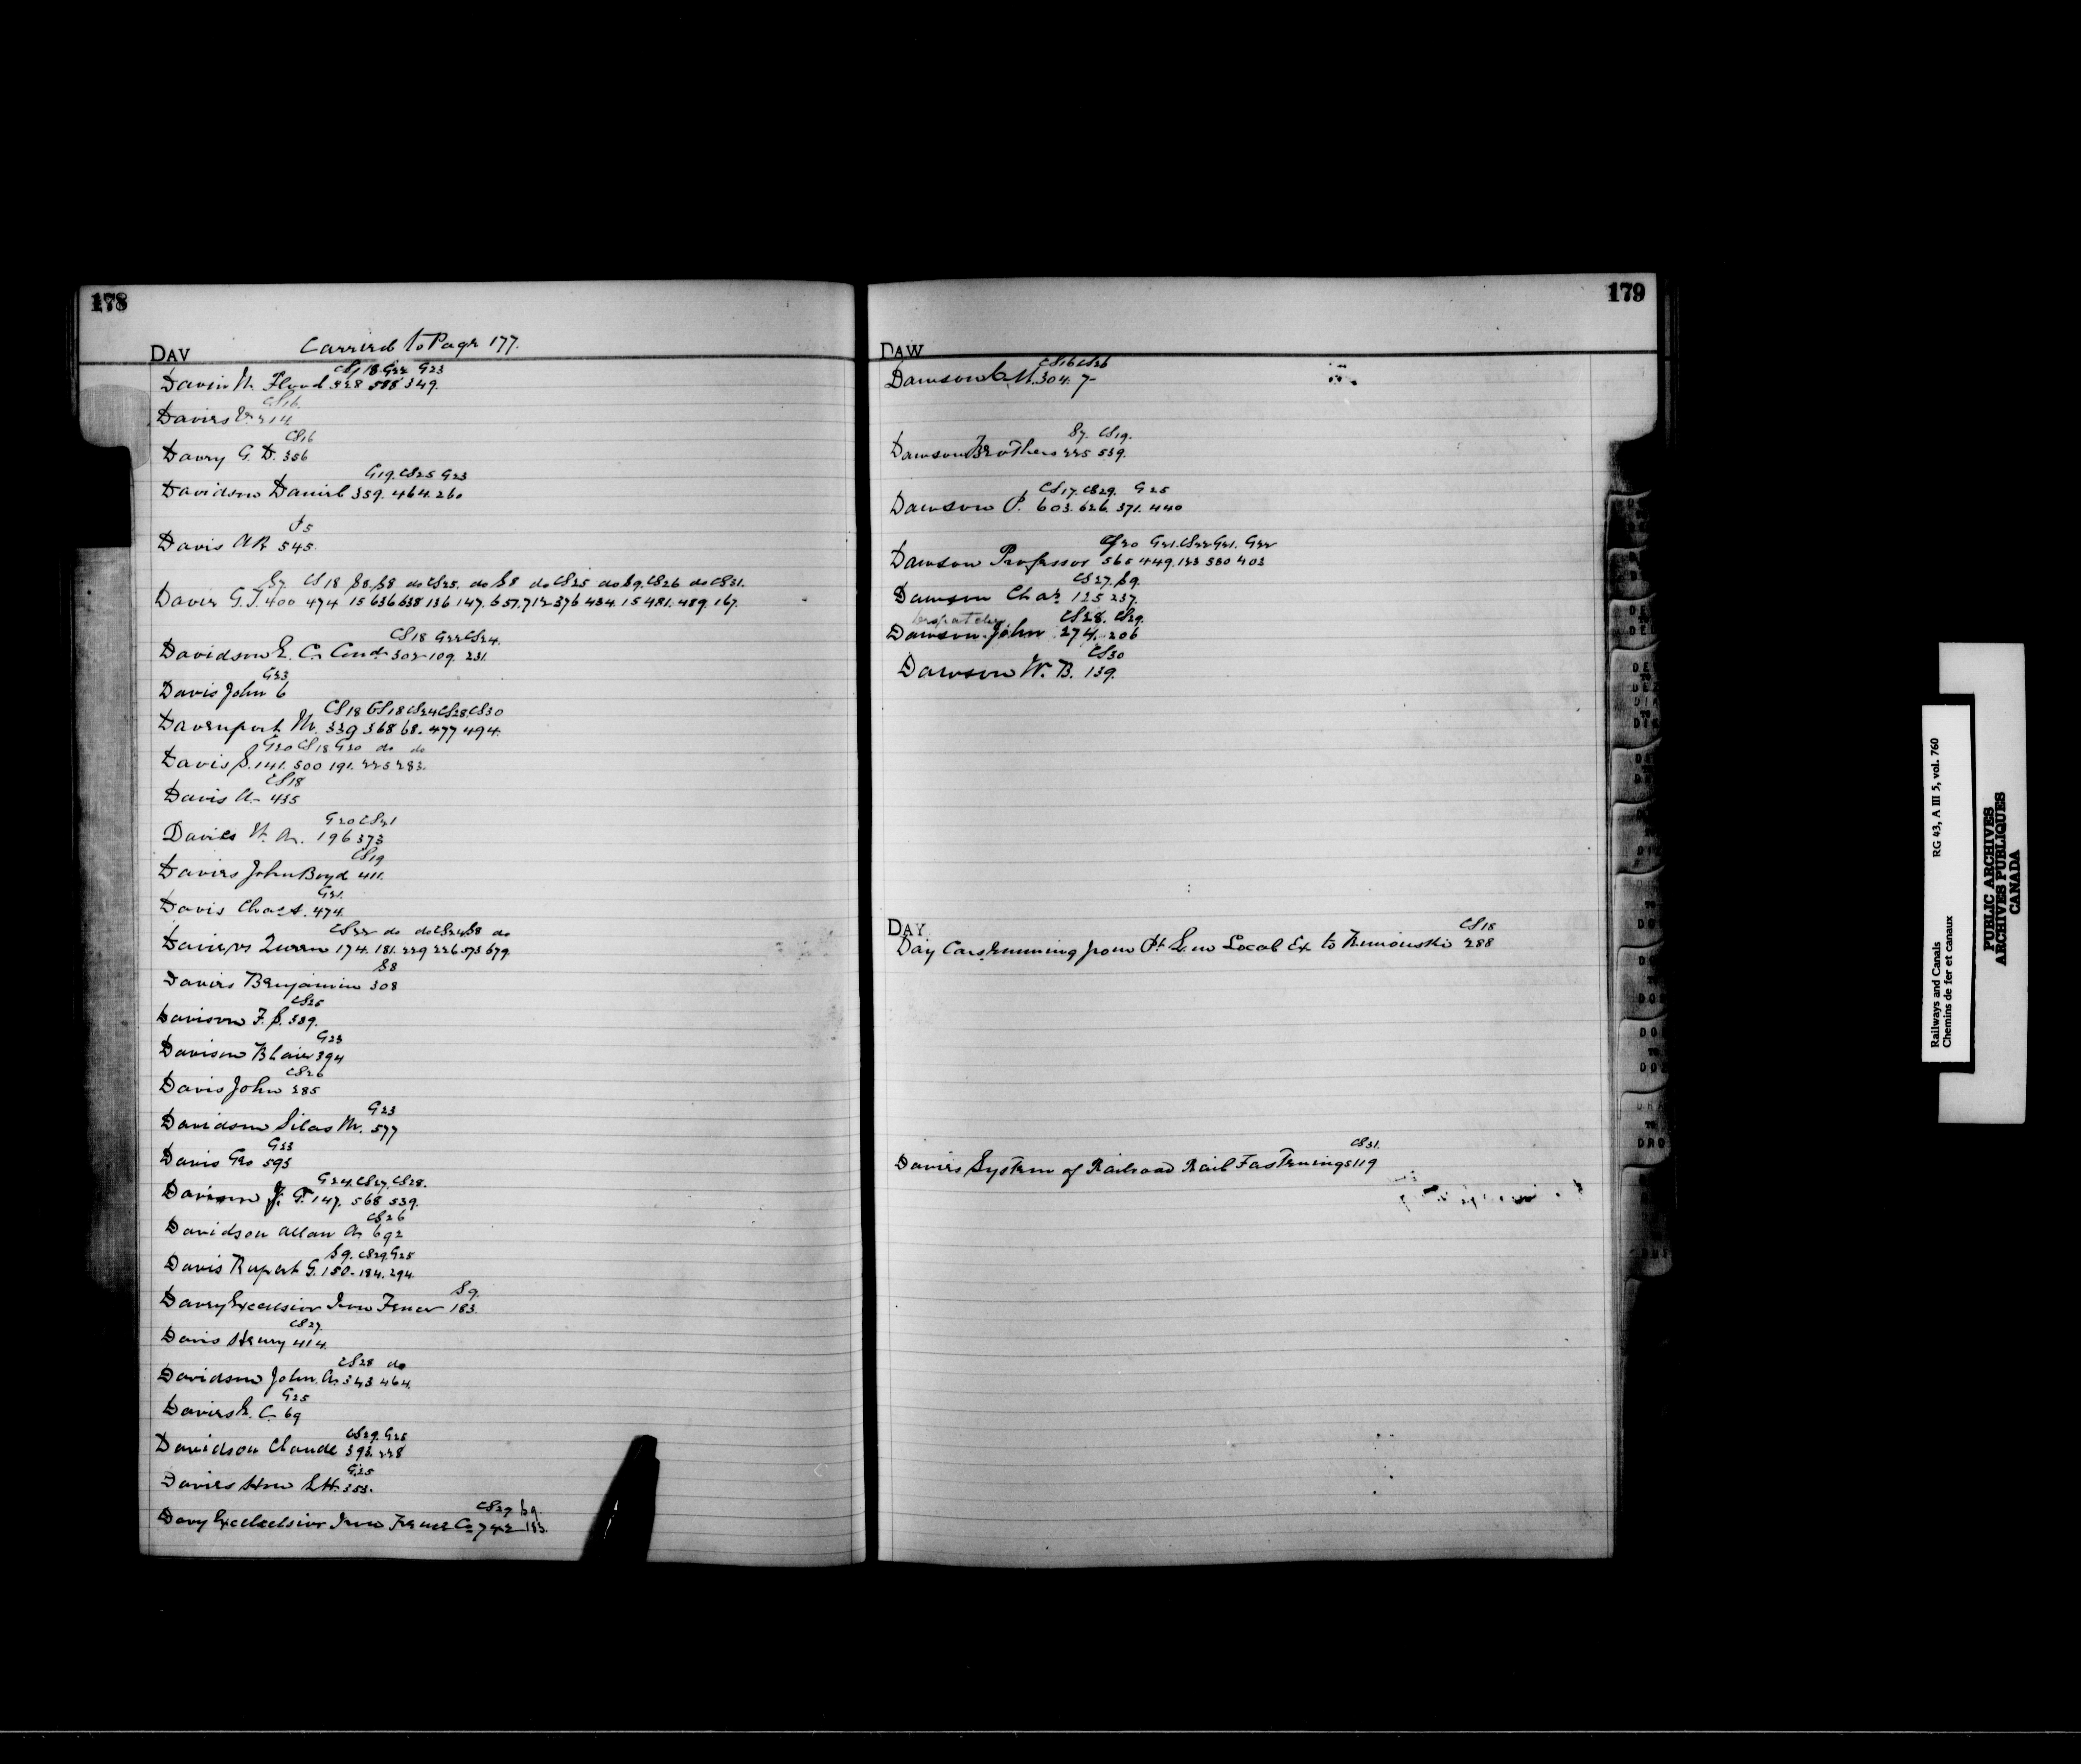 178
DAV Carried to Page 177.
CS18 G22 G23
Davin N. Flood 328 588 349.
CS16
Davies
CS16
Davey G. D. 356
G19. CS25 G23
Davidson Daniel 359. 464. 260
S5
Davis A R 545.
S7 CS18 S8. S8 do CS25. do S8 do CS25 do S9. CS26 do CS31.
Davis G. T. 400 474 15 636 638 136 147. 657. 712 376 434. 15 481. 489. 167.
CS18 G22 CS24.
Davidson E. C. Cond. 302 109. 231.
G23
Davis John 6
CS18 CS18 CS24 CS28. CS30
Davenport M. 339 368 68. 477 494.
G20 CS18 G20 do do
Davis S. 141. 500 191. 225 283.
CS18
Davis A. 435
G20 CS21
Davies W. A. 196 373
CS19
Davies John Boyd 411.
G21.
Davis Chas A. 474.
CS22 do do CS24 S8 do
vs Queen 174. 181. 229 226 573 679.
S8
Davies Benjamin 308
CS25
Davison F. S. 389.
G23
Davison Blair 394
CS26
Davis John 285
G23
Davidson Silas M. 577
G23
Davis Geo 595
G24. CS27. CS28.
Davison J. T. 147. 568 539.
CS26
Davidson Allan A. 692
S9. CS29. G25
Davis Rupert G. 150. 184. 294.
S9.
Davey Excelsior Iron Fence 183.
CS27.
Davis Henry 414.
CS28 do
Davidson John. A. 343 464.
G25
Davies E. C. 69
CS29. G25
Davidson Claude 393. 228
G25
Davies Hon L H. 353.
CS27 S9.
Davy Excelcelsior Iron Fence Co 742 183.
179
DAW
CS16 CS26
Dawson C. H. 304. 7
S7. CS19.
Dawson Brothers 225 539.
CS17. CS29. G25
Dawson P. 603. 626. 371. 440
G20 G21. CS22 G21. G22
Dawson Professor 565 449. 133 580 403
CS27. S9.
Dawson Chas 125 237.
Despatcher CS28. CS29.
Dawson John 274. 206
CS30
Dawson W. B. 139.
DAY
CS18
Day Cars running from Pt L. on Local Ex to Rimouski 288
CS31.
Davies System of Railroad Rail Fastenings 119
DE
DE
DO
DO
TO
DRO
Railways and Canals RG 43, A III 5, vol. 760
Chemins de fer et canaux
PUBLIC ARCHIVES
ARCHIVES PUBLIQUES
CANADA